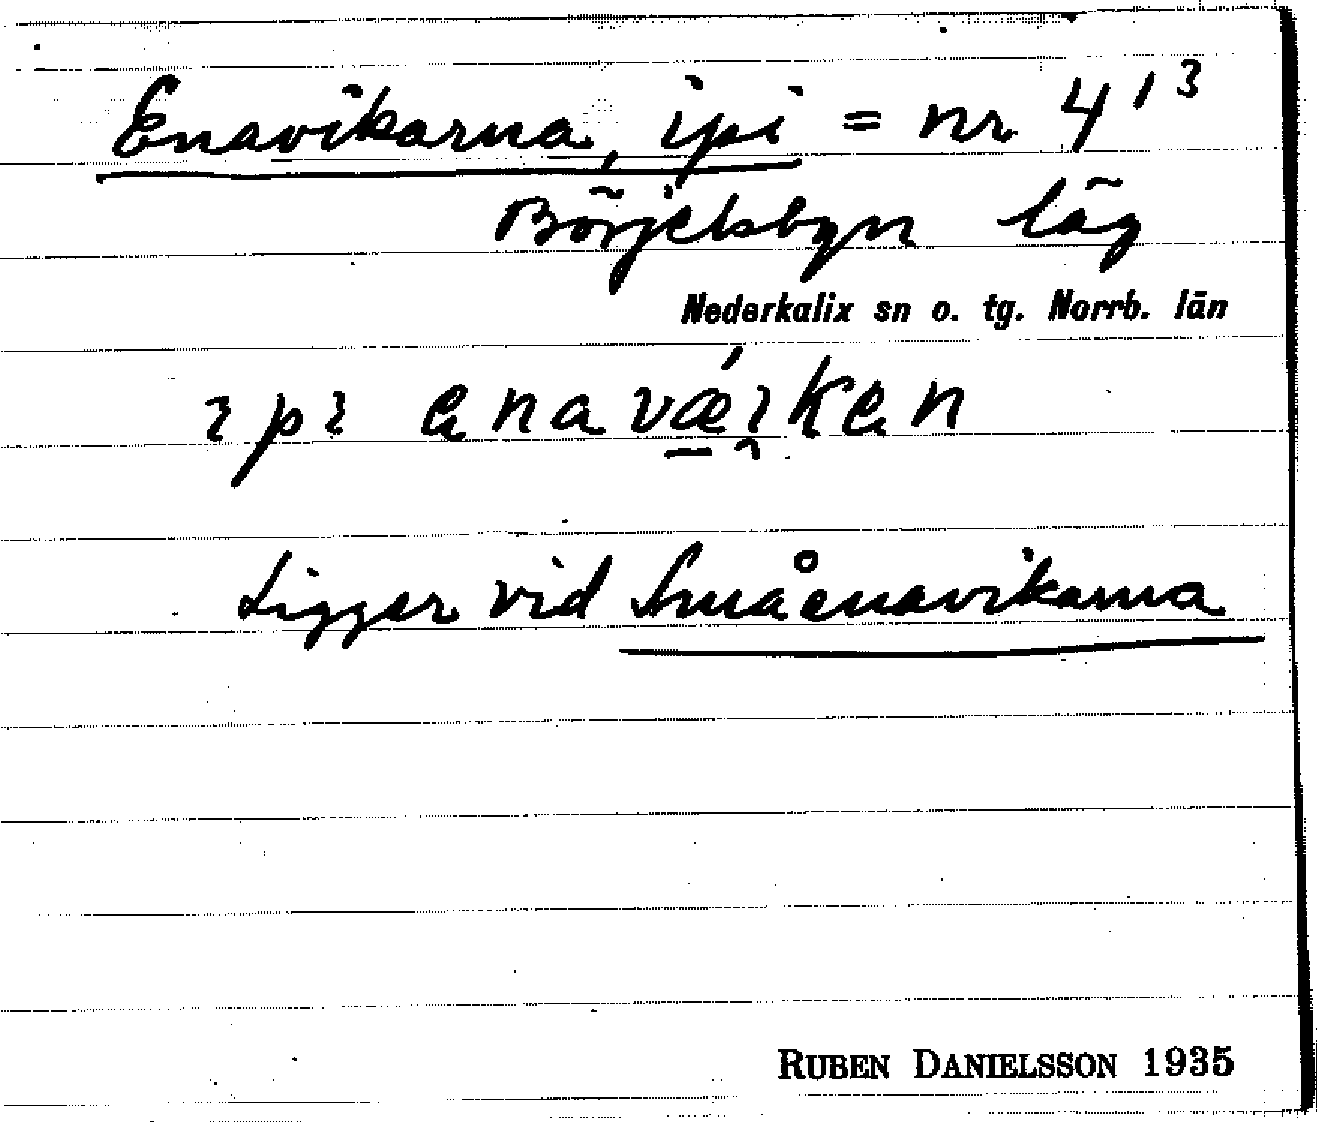 Enavikarna, ipi = nr 4¹³
Börjelsbyn läg
Nederkalix sn o. tg. Norrb. län
ɩpɩ enavǽɩ̯ken
Ligger vid Småenavikarna
RUBEN DANIELSSON 1935